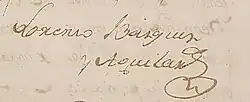 Lorenzo Basques
y Aquilar